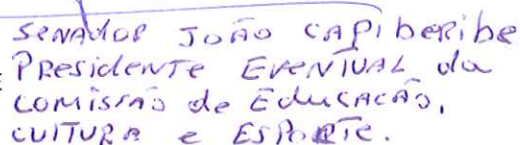 SENADOR JOÃO CAPIBERIBE
PRESIDENTE EVENTUAL da
COMISSÃO de EDUCACÃO,
CULTURA e ESPORTE.